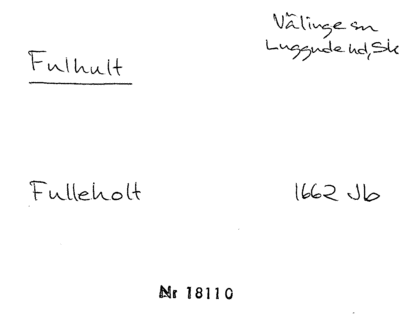 Välinge sn
Luggude hd, Sk
Fulhult
Fulleholt 1662 Jb
Nr 18110